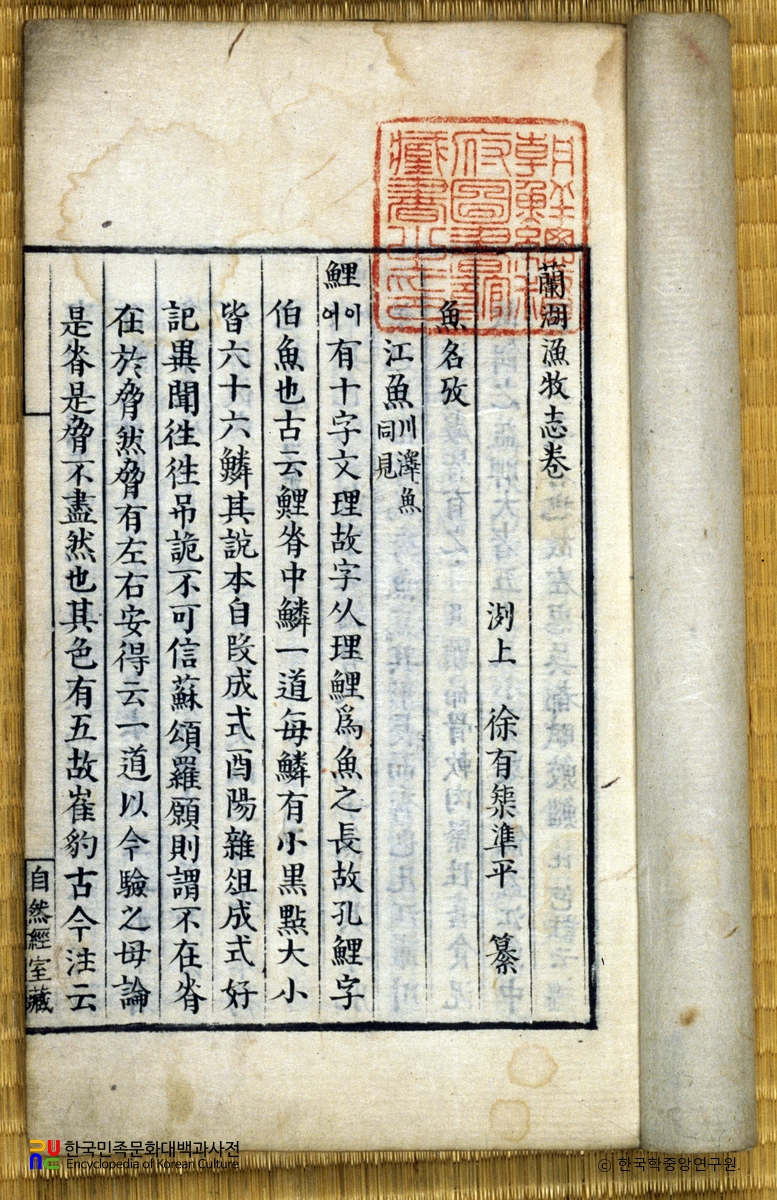 蘭湖漁牧志卷
洌上 徐有榘準平 纂
魚名攷
江魚 川澤魚同見
鯉 이어 有十字文理故字从理鯉爲魚之長故孔鯉字
伯魚也古云鯉脊中鱗一道每鱗有小黑點大小
皆六十六鱗其說本自段成式酉陽雜俎成式好
記異聞徃徃吊詭不可信蘇頌羅願則謂不在脊
在於脅然脅有左右安得云一道以今驗之毋論
是脊是脅不盡然也其色有五故崔豹古今注云
自然經室藏
朝鮮總督府圖書館藏書之印
한국민족문화대백과사전
Encyclopedia of Korean Culture
© 한국학중앙연구원